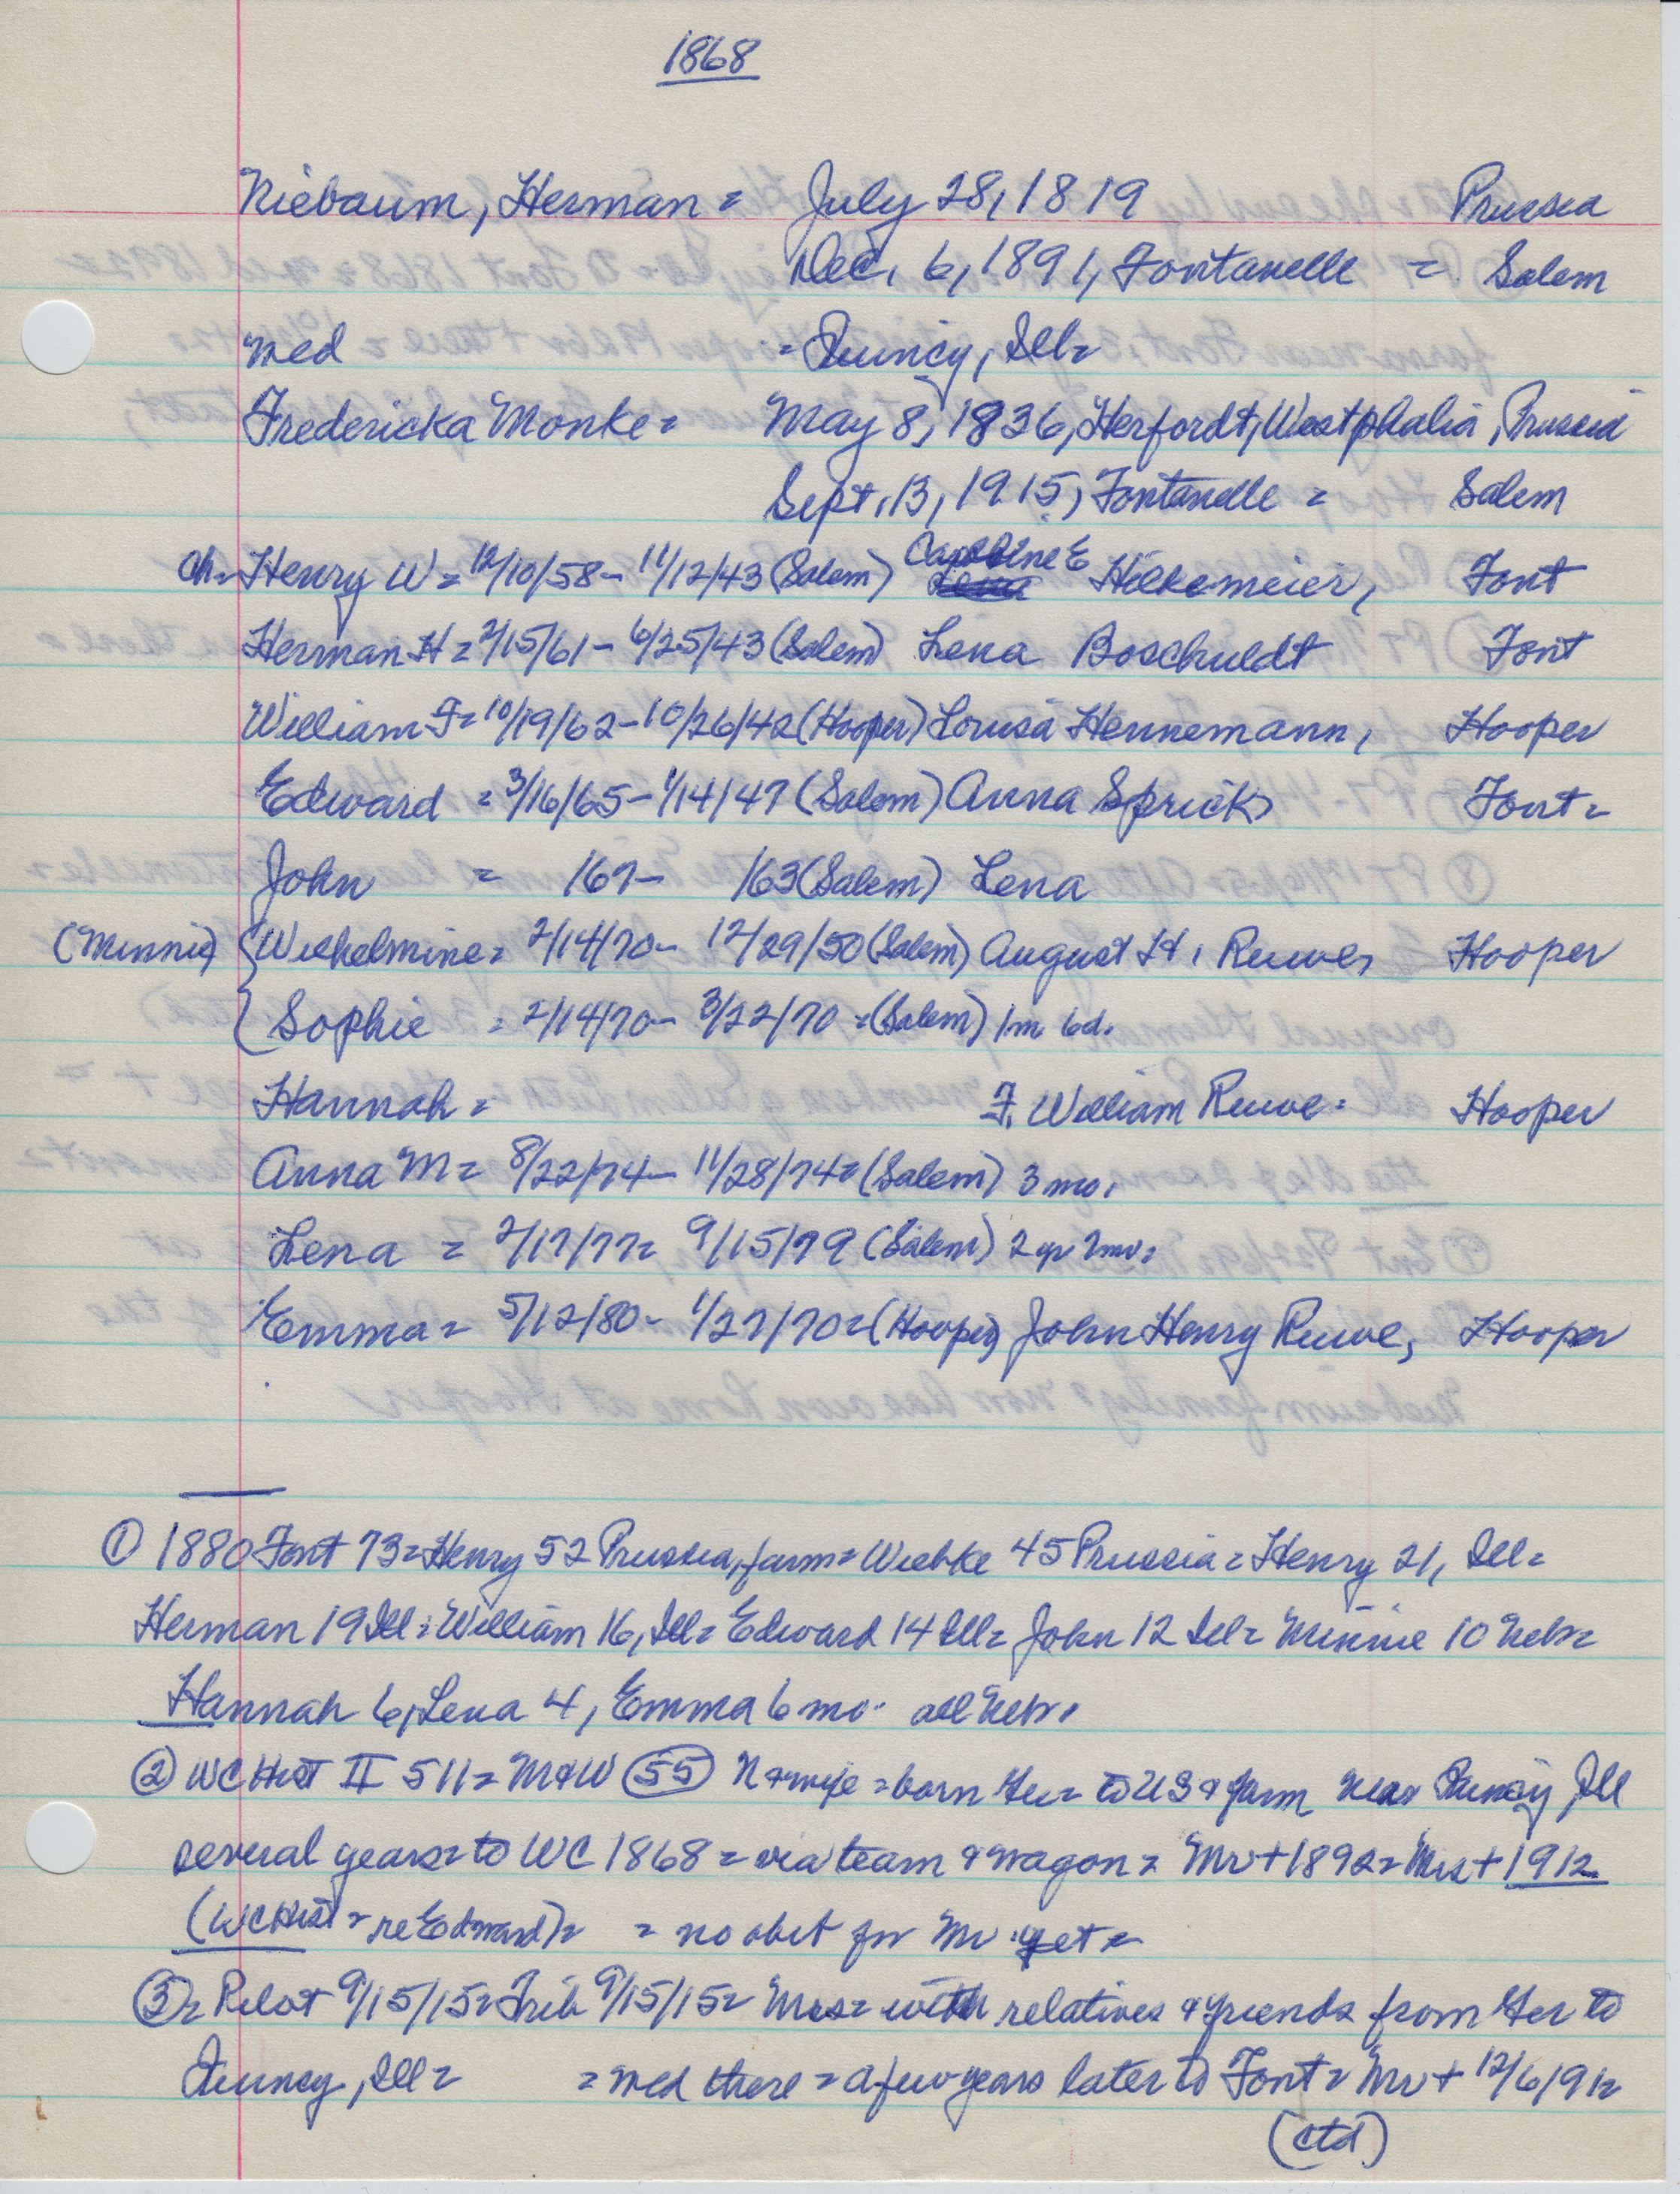 1868
Niebaum, Herman = July 28, 1819 Prussia
Dec. 6, 1891, Fontanelle = Salem
med = Quincy, Ill =
Fredericka Monke = May 8, 1836, Herfordt, Westphalia, Prussia
Sept. 13, 1915, Fontanelle = Salem
ch = Henry W = 12/10/58 - 11/12/43 (Salem) Caroline E Hilkemeier, Font
Herman H = 2/15/61 - 6/25/43 (Salem) Lena Boschuldt Font
William F = 10/19/62 - 10/26/42 (Hooper) Louisa Hennemann, Hooper
Edward = 3/16/65 - 1/14/47 (Salem) Anna Sprick Font =
John = /67 - /63 (Salem) Lena
(Minnie) { Wilhelmine = 2/14/70 - 12/29/50 (Salem) August H. Ruwe, Hooper
{ Sophie = 2/14/70 - 3/22/70 = (Salem) 1m 6d.
Hannah = F. William Ruwe = Hooper
Anna M = 8/22/74 - 11/28/74 = (Salem) 3 mo.
Lena = 2/17/77 = 9/15/79 (Salem) 2 yr 7mo =
Emma = 5/12/80 - 1/27/70 = (Hooper) John Henry Ruwe, Hooper
① 1880 Font 73 = Henry 52 Prussia, farm = Wiebke 45 Prussia = Henry 21, Ill =
Herman 19 Ill = William 16, Ill = Edward 14 Ill = John 12 Ill = Minnie 10 Neb =
Hannah 6, Lena 4, Emma 6 mo. all Neb.
② WC Hist II 511 = M&W (55) N & wife = born Ger = to US & farm near Quincy Ill
several years = to WC 1868 = via team & wagon = Mr + 1892 = Mrs + 1912
(WCHist = re Edward) = = no obit for Mr. yet =
③ = Pilot 9/15/15 = Trib 9/15/15 = Mrs = with relatives & friends from Ger to
Quincy, Ill = = med there = a few years later to Font = Mr + 12/6/91 =
(ctd)